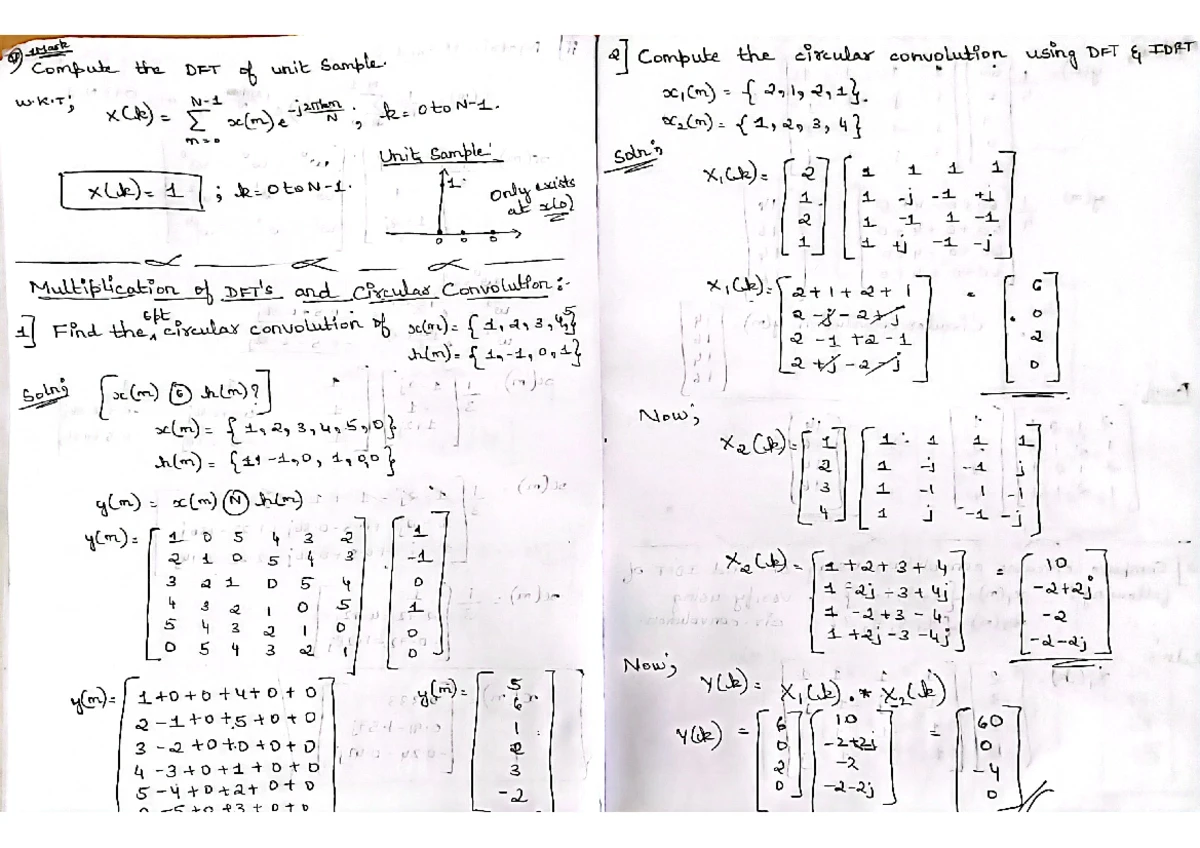 1Mark
Compute the DFT of unit sample.
W.K.T;
X(k) = N-1 Σ n=0 x(n) e^-j2πkn/N ; k = 0 to N-1.
Unit sample:
1
X(k) = 1 ; k = 0 to N-1.
Only exists
at x(0)
0 0 0
Multiplication of DFT's and Circular Convolution:-
1] Find the 6pt circular convolution of x(n) = {1, 2, 3, 4, 5}
h(n) = {1, -1, 0, 1}
Soln; [x(n) ⑥ h(n)?]
x(n) = {1, 2, 3, 4, 5, 0}
h(n) = {1, -1, 0, 1, 0, 0}
y(n) = x(n) Ⓝ h(n)
y(n) = [1 0 5 4 3 2] [1]
2 1 0 5 4 3 -1
3 2 1 0 5 4 0
4 3 2 1 0 5 1
5 4 3 2 1 0 0
0 5 4 3 2 1 0
y(n) = [1+0+0+4+0+0 y(n) = [5
2-1+0+5+0+0 6
3-2+0+0+0+0 1
4-3+0+1+0+0 2
5-4+0+2+0+0 3
0-5+0+3+0+0 -2
2] Compute the circular convolution using DFT & IDFT
x₁(n) = {2, 1, 2, 1}.
x₂(n) = {1, 2, 3, 4}
Soln;
X₁(k) = [2] [1 1 1 1]
1 1 -j -1 +j
2 1 -1 1 -1
1 1 +j -1 -j
X₁(k) = [2+1+2+1] = [6]
2-j-2+j 0
2-1+2-1 2
2+j-2-j 0
Now;
X₂(k) = [1] [1 1 1 1]
2 1 -j -1 j
3 1 -1 1 -1
4 1 j -1 -j
X₂(k) = [1+2+3+4] = [10]
1-2j-3+4j -2+2j
1-2+3-4 -2
1+2j-3-4j -2-2j
Now;
Y(k) = X₁(k) .* X₂(k)
Y(k) = [6] [10] = [60]
0 -2+2j 0
2 -2 -4
0 -2-2j 0